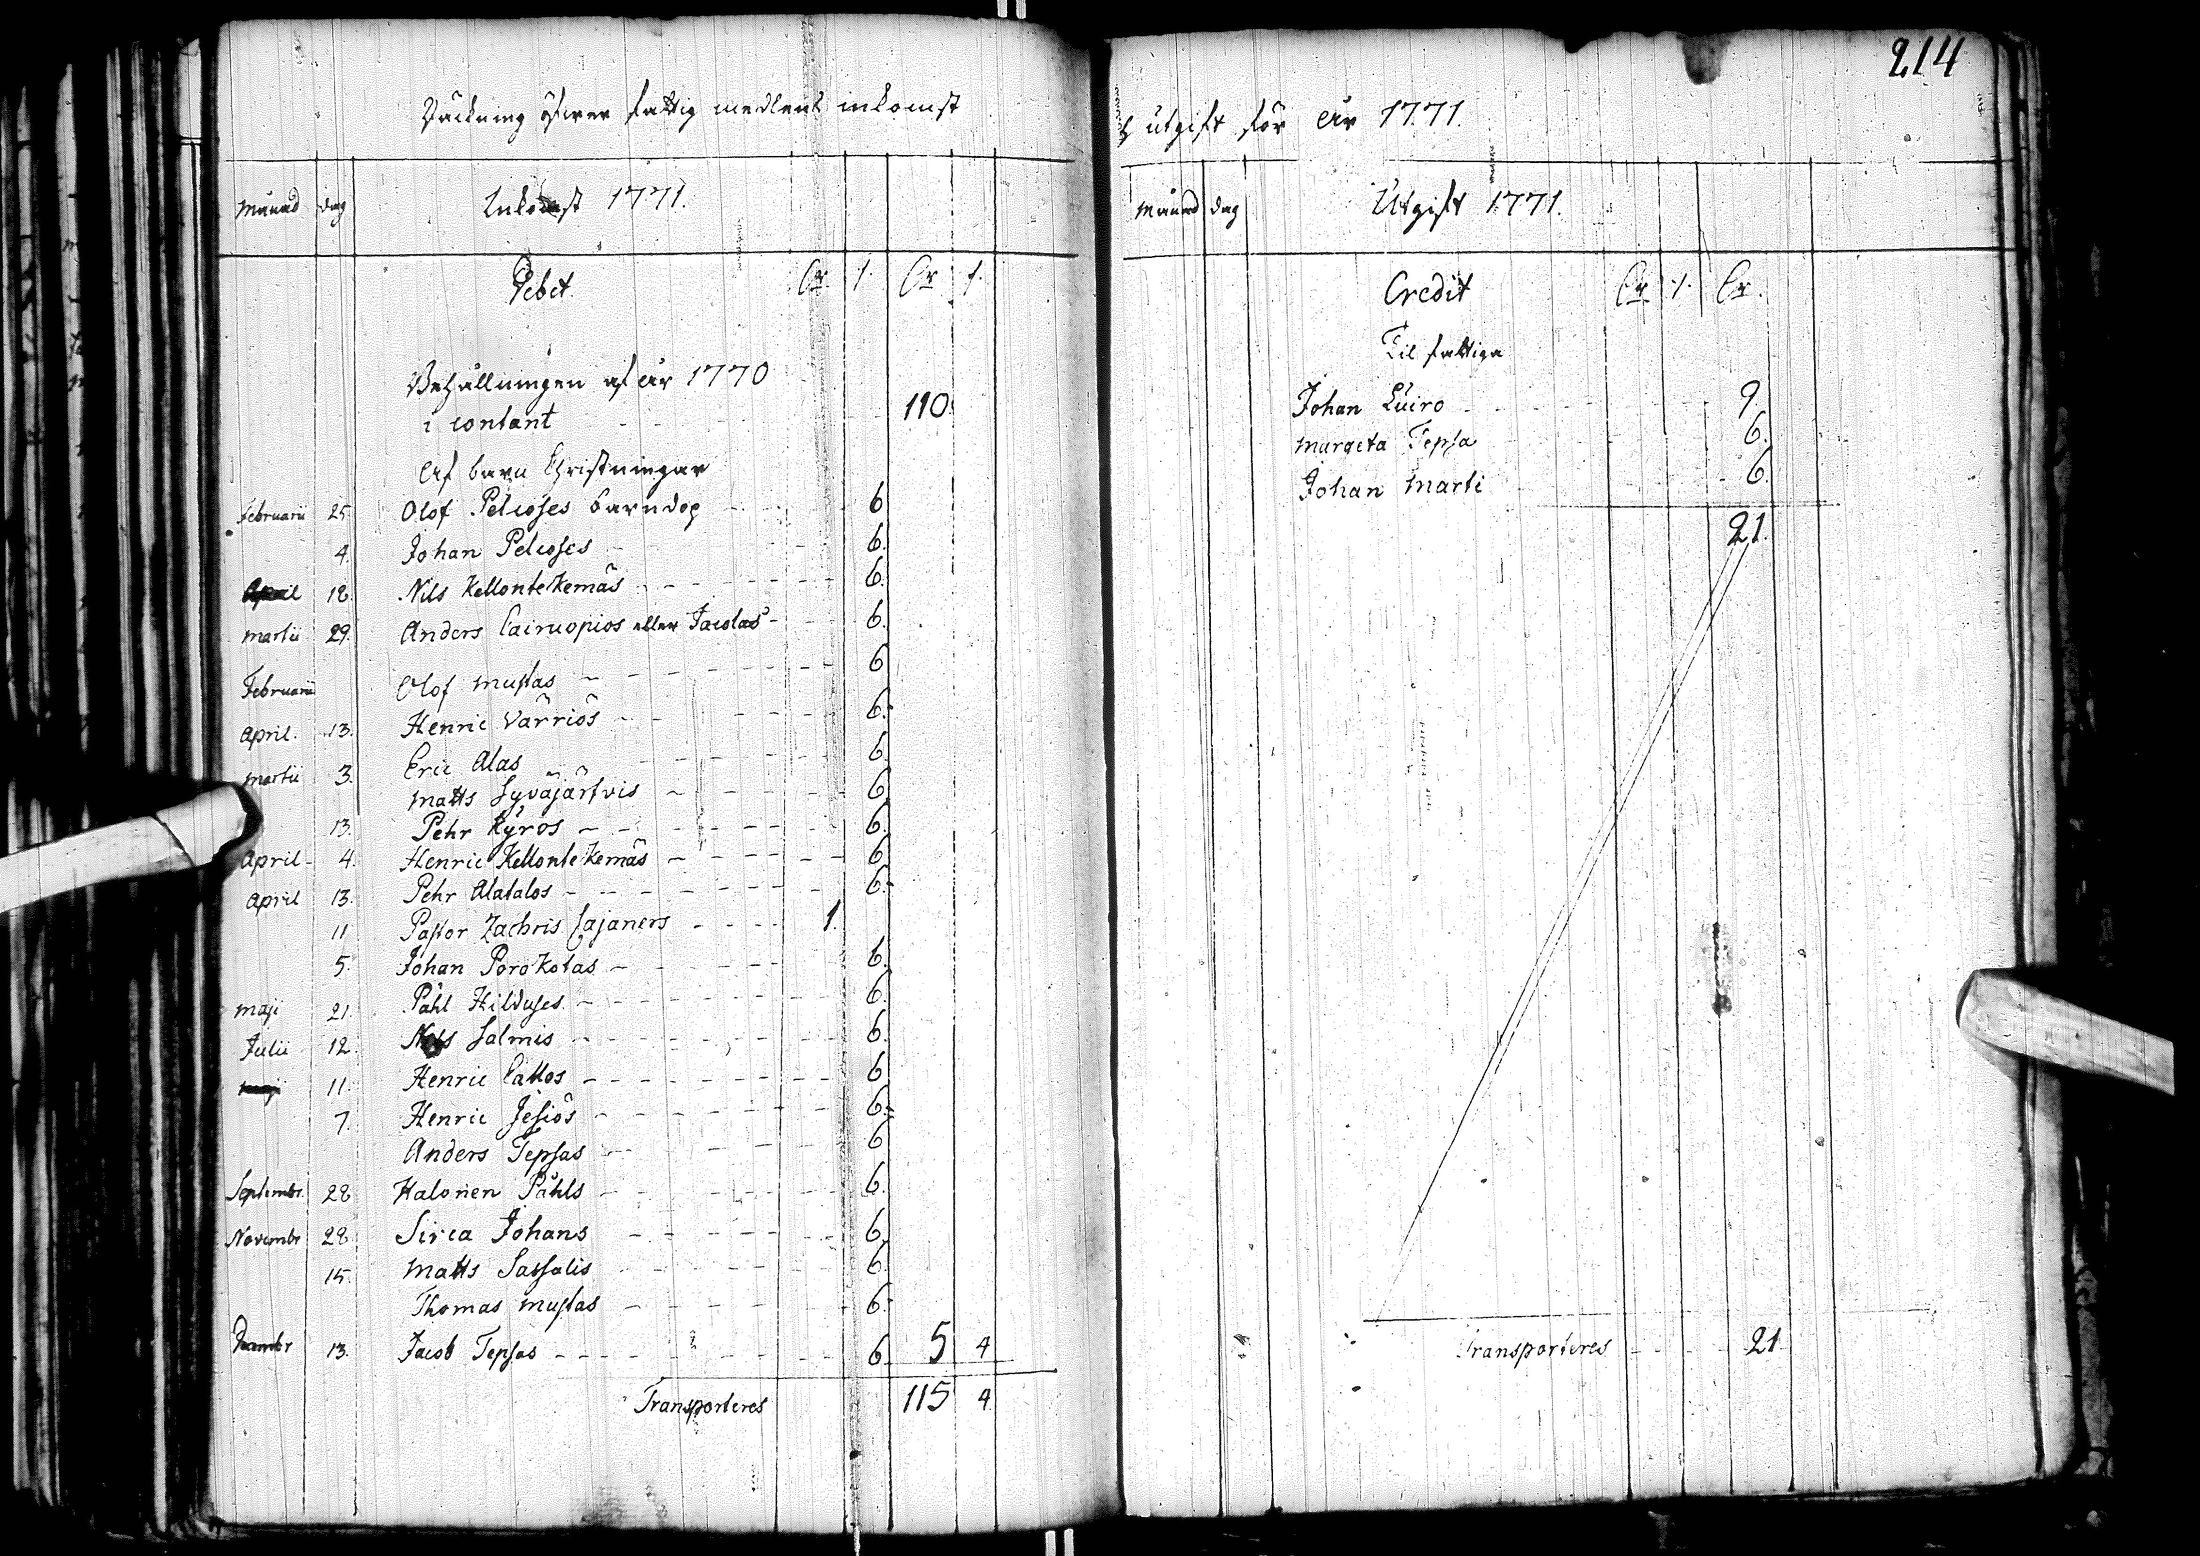 214
Räkning öfwer fattig medlens inkomst
och utgift för År 1771.
månad dag Inkomst 1771.
Debet. Cr. /. Cr /.
Behållningen af år 1770
i contant 110.
Af barn Christningar
Februarii 25 Olof Pelcoses barndop 6
4. Johan Pelcoses 6.
April 18 Nils Kellontekemäs 6.
martii 29. Anders Cairuopios eller Jacolas 6.
Februarii Olof mustas 6
April. 13. Henric Värriös 6.
martii 3. Eric Alas 6.
matts Syväjärfvis 6
13. Pehr Kyrös 6.
April 4. Henric Kellontekemäs 6
April 13. Pehr Alatalos 6.
11 Pastor Zachris Cajaners 1.
5. Johan Porokotas 6.
maji 21. Påhl Hilduses 6.
Julii 12. Nils Salmis 6.
maji 11. Henric Cattos 6
7. Henric Jesiös 6.
Anders Tepsas 6
Septembr. 28 Halonen Påhls 6.
Novembr 28 Sirca Johans 6.
15. matts Sassalis 6.
Thomas mustas 6.
Decembr 13. Jacob Tepsas 6 5 4
Transporteres 115 4
månad dag Utgift 1771.
Credit Cr /. Cr.
Til fattiga
Johan Luiro 9.
margeta Tepsa 6.
Johan Marti 6.
21.
Transporteres 21